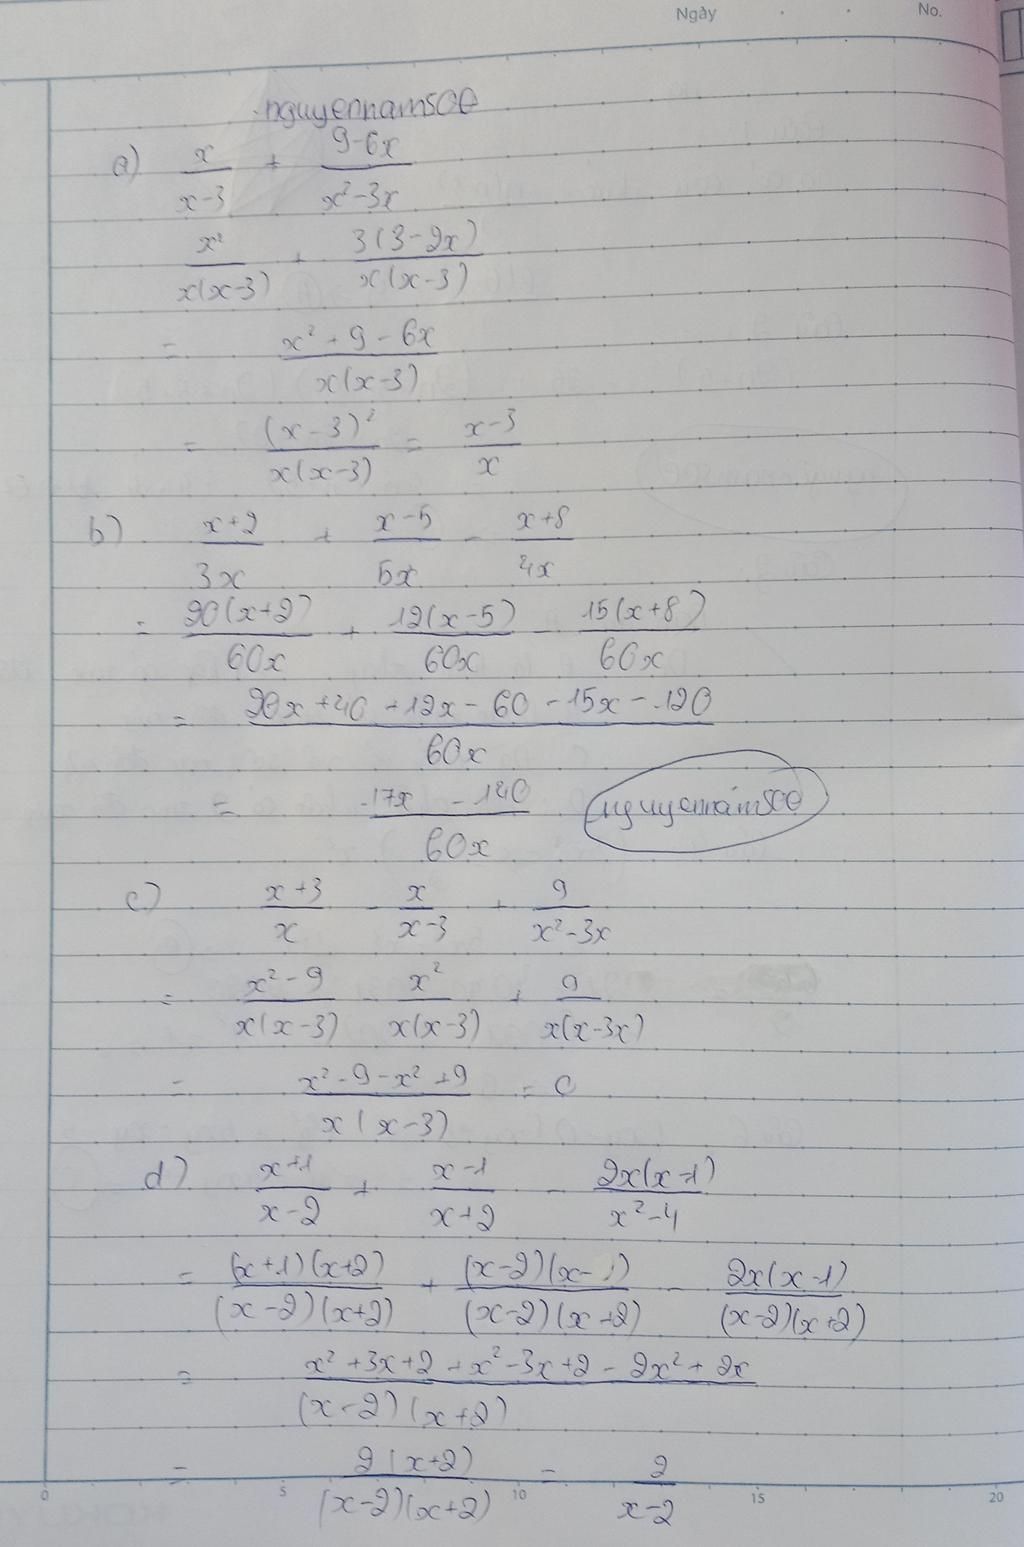 Ngày . . No.
nguyennam5CE
a) x/(x-3) + (9-6x)/(x²-3x)
x²/(x(x-3)) + 3(3-2x)/(x(x-3))
= (x²+9-6x)/(x(x-3))
= (x-3)²/(x(x-3)) = (x-3)/x
b) (x+2)/(3x) + (x-5)/(5x) - (x+8)/(4x)
= 20(x+2)/(60x) + 12(x-5)/(60x) - 15(x+8)/(60x)
= (20x+40+12x-60-15x-120)/(60x)
= (17x-140)/(60x)
c) (x+3)/x - x/(x-3) + 9/(x²-3x)
= (x²-9)/(x(x-3)) - x²/(x(x-3)) + 9/(x(x-3x))
= (x²-9-x²+9)/(x(x-3)) = 0
d) (x+1)/(x-2) + (x-1)/(x+2) - 2x(x-1)/(x²-4)
= (x+1)(x+2)/((x-2)(x+2)) + (x-2)(x-1)/((x-2)(x+2)) - 2x(x-1)/((x-2)(x+2))
= (x²+3x+2+x²-3x+2-2x²+2x)/((x-2)(x+2))
= 2(x+2)/((x-2)(x+2)) = 2/(x-2)
0 5 10 15 20